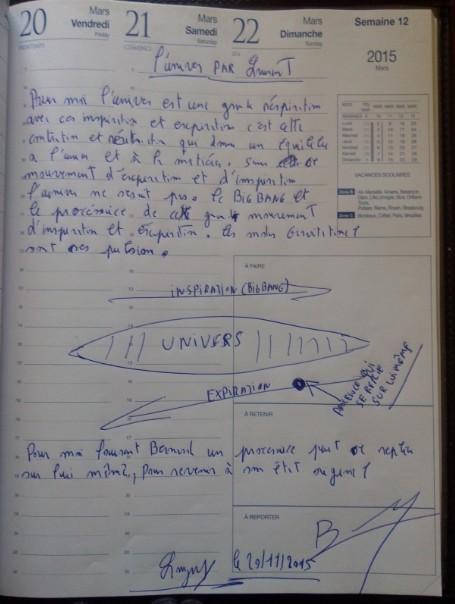 20 Mars Vendredi Friday
21 Mars Samedi Saturday
22 Mars Dimanche Sunday
Semaine 12
2015
Mars
PRINTEMPS
L'univers PAR Laurent
Pour moi l'univers est une grande respiration
avec ces inspiration et expiration c'est cette
contraction et qui donne un équilibre
a l'univers et à la matière. Sans ce
mouvement d'expiration et d'inspiration
l'univers ne serait pas. le BIG BANG et
le processus de ce grand mouvement
d'inspiration et expiration. les ondes Gravitationel
sont ces pulsion.
VACANCES SCOLAIRES
À FAIRE
INSPIRATION (BIG BANG)
UNIVERS
EXPIRATION
QUI
SE REPLIE
SUR LUI MÊME
À RETENIR
Pour moi Laurent Bernard un processus peut se replier
sur lui même, pour revenir à son état originel
À REPORTER
B
le 20/11/2015